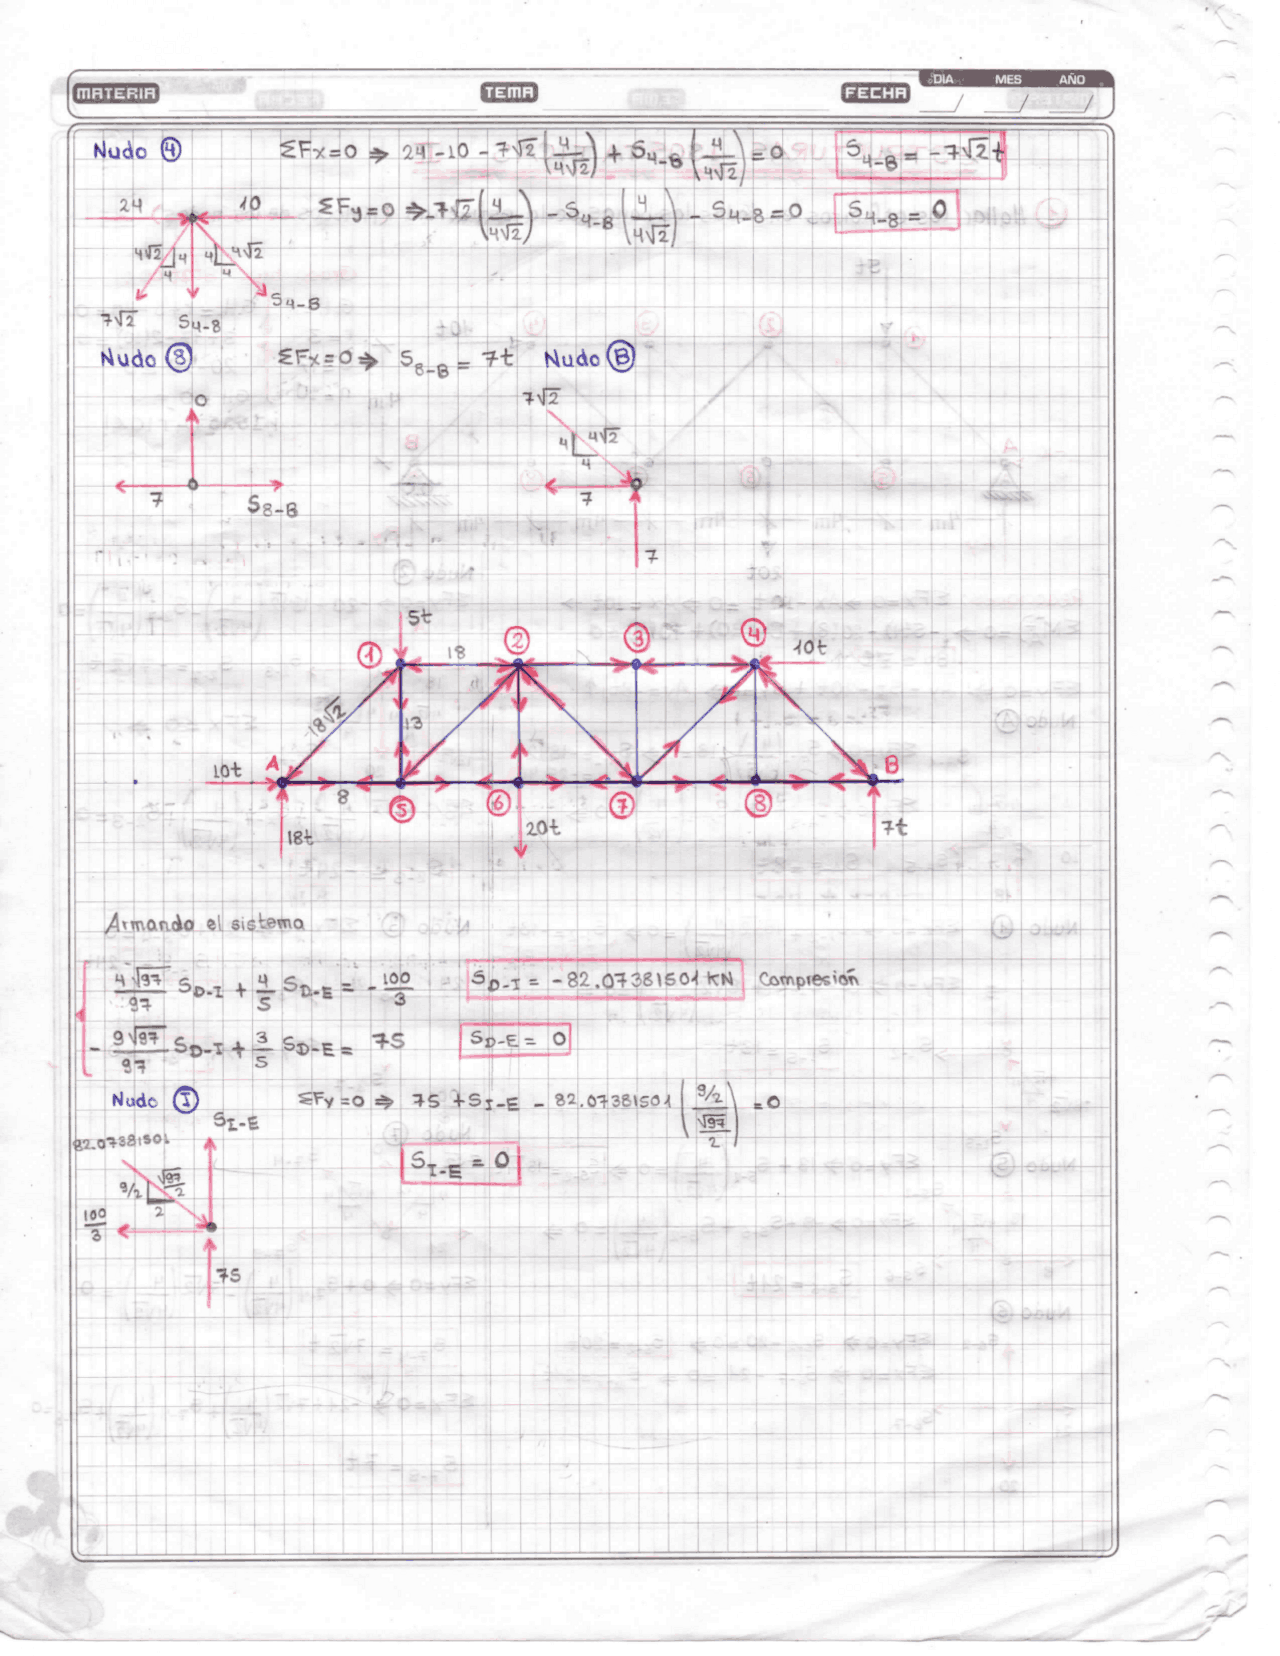 MATERIA TEMA FECHA DÍA MES AÑO
Nudo ④ ΣFx=0 ⇒ 24-10-7√2(4/4√2)+S4-B(4/4√2)=0 S4-B=-7√2t
ΣFy=0 ⇒-7√2(4/4√2)-S4-B(4/4√2)-S4-8=0 S4-8=0
24 10
4√2 4 4 4 4 4√2
7√2 S4-8 S4-B
Nudo ⑧ ΣFx=0 ⇒ S8-B=7t Nudo Ⓑ
0
7 S8-B
7√2
4 4√2
4
7
7
5t
① 18 ② ③ ④ 10t
18√2 13
10t A B
8 ⑤ ⑥ ⑦ ⑧
18t 20t 7t
Armando el sistema
4√97/97 SD-I + 4/5 SD-E = -100/3 SD-I = -82.07381501 KN Compresión
- 9√97/97 SD-I + 3/5 SD-E = 75 SD-E = 0
Nudo Ⓘ ΣFy=0 ⇒ 75+SI-E - 82.07381501(9/2/√97/2)=0
SI-E
82.07381501
SI-E = 0
9/2 √97/2
2
100/3
75